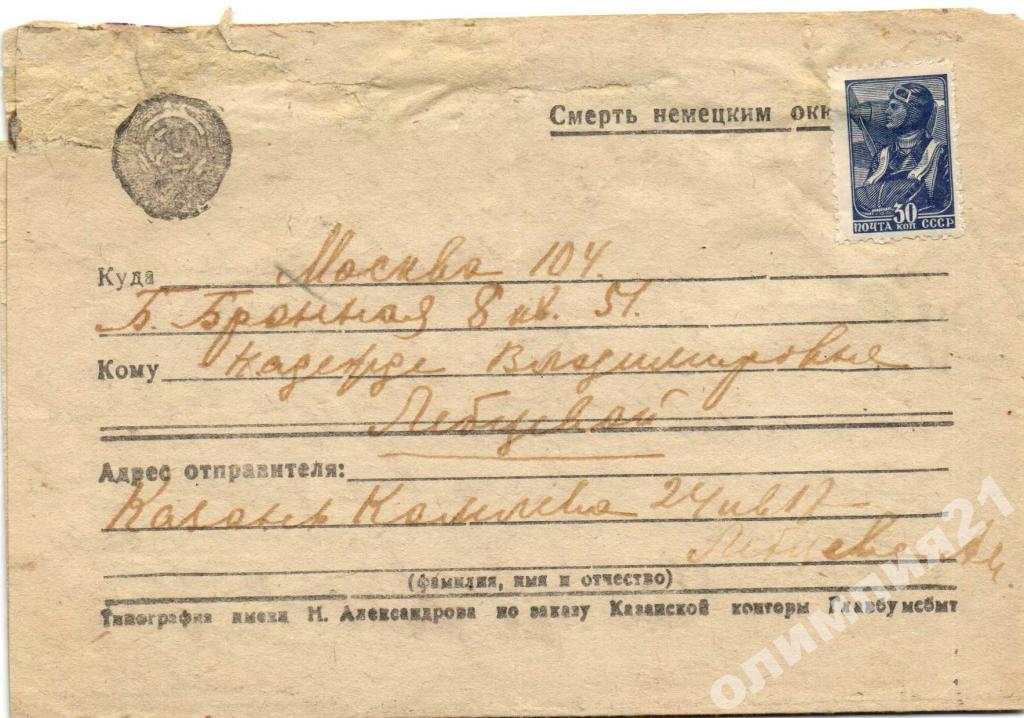 Смерть немецким окк
30
ПОЧТА КОП СССР
Куда Москва 104.
Б. Бронная 8 кв. 51.
Кому Надежде Владимировне
Лебцевой
Адрес отправителя:
Казань Комлева 24 кв 17
(фамилия, имя и отчество)
Типография имени Н. Александрова по заказу Казанской конторы Главбумсбыт
олимпия21